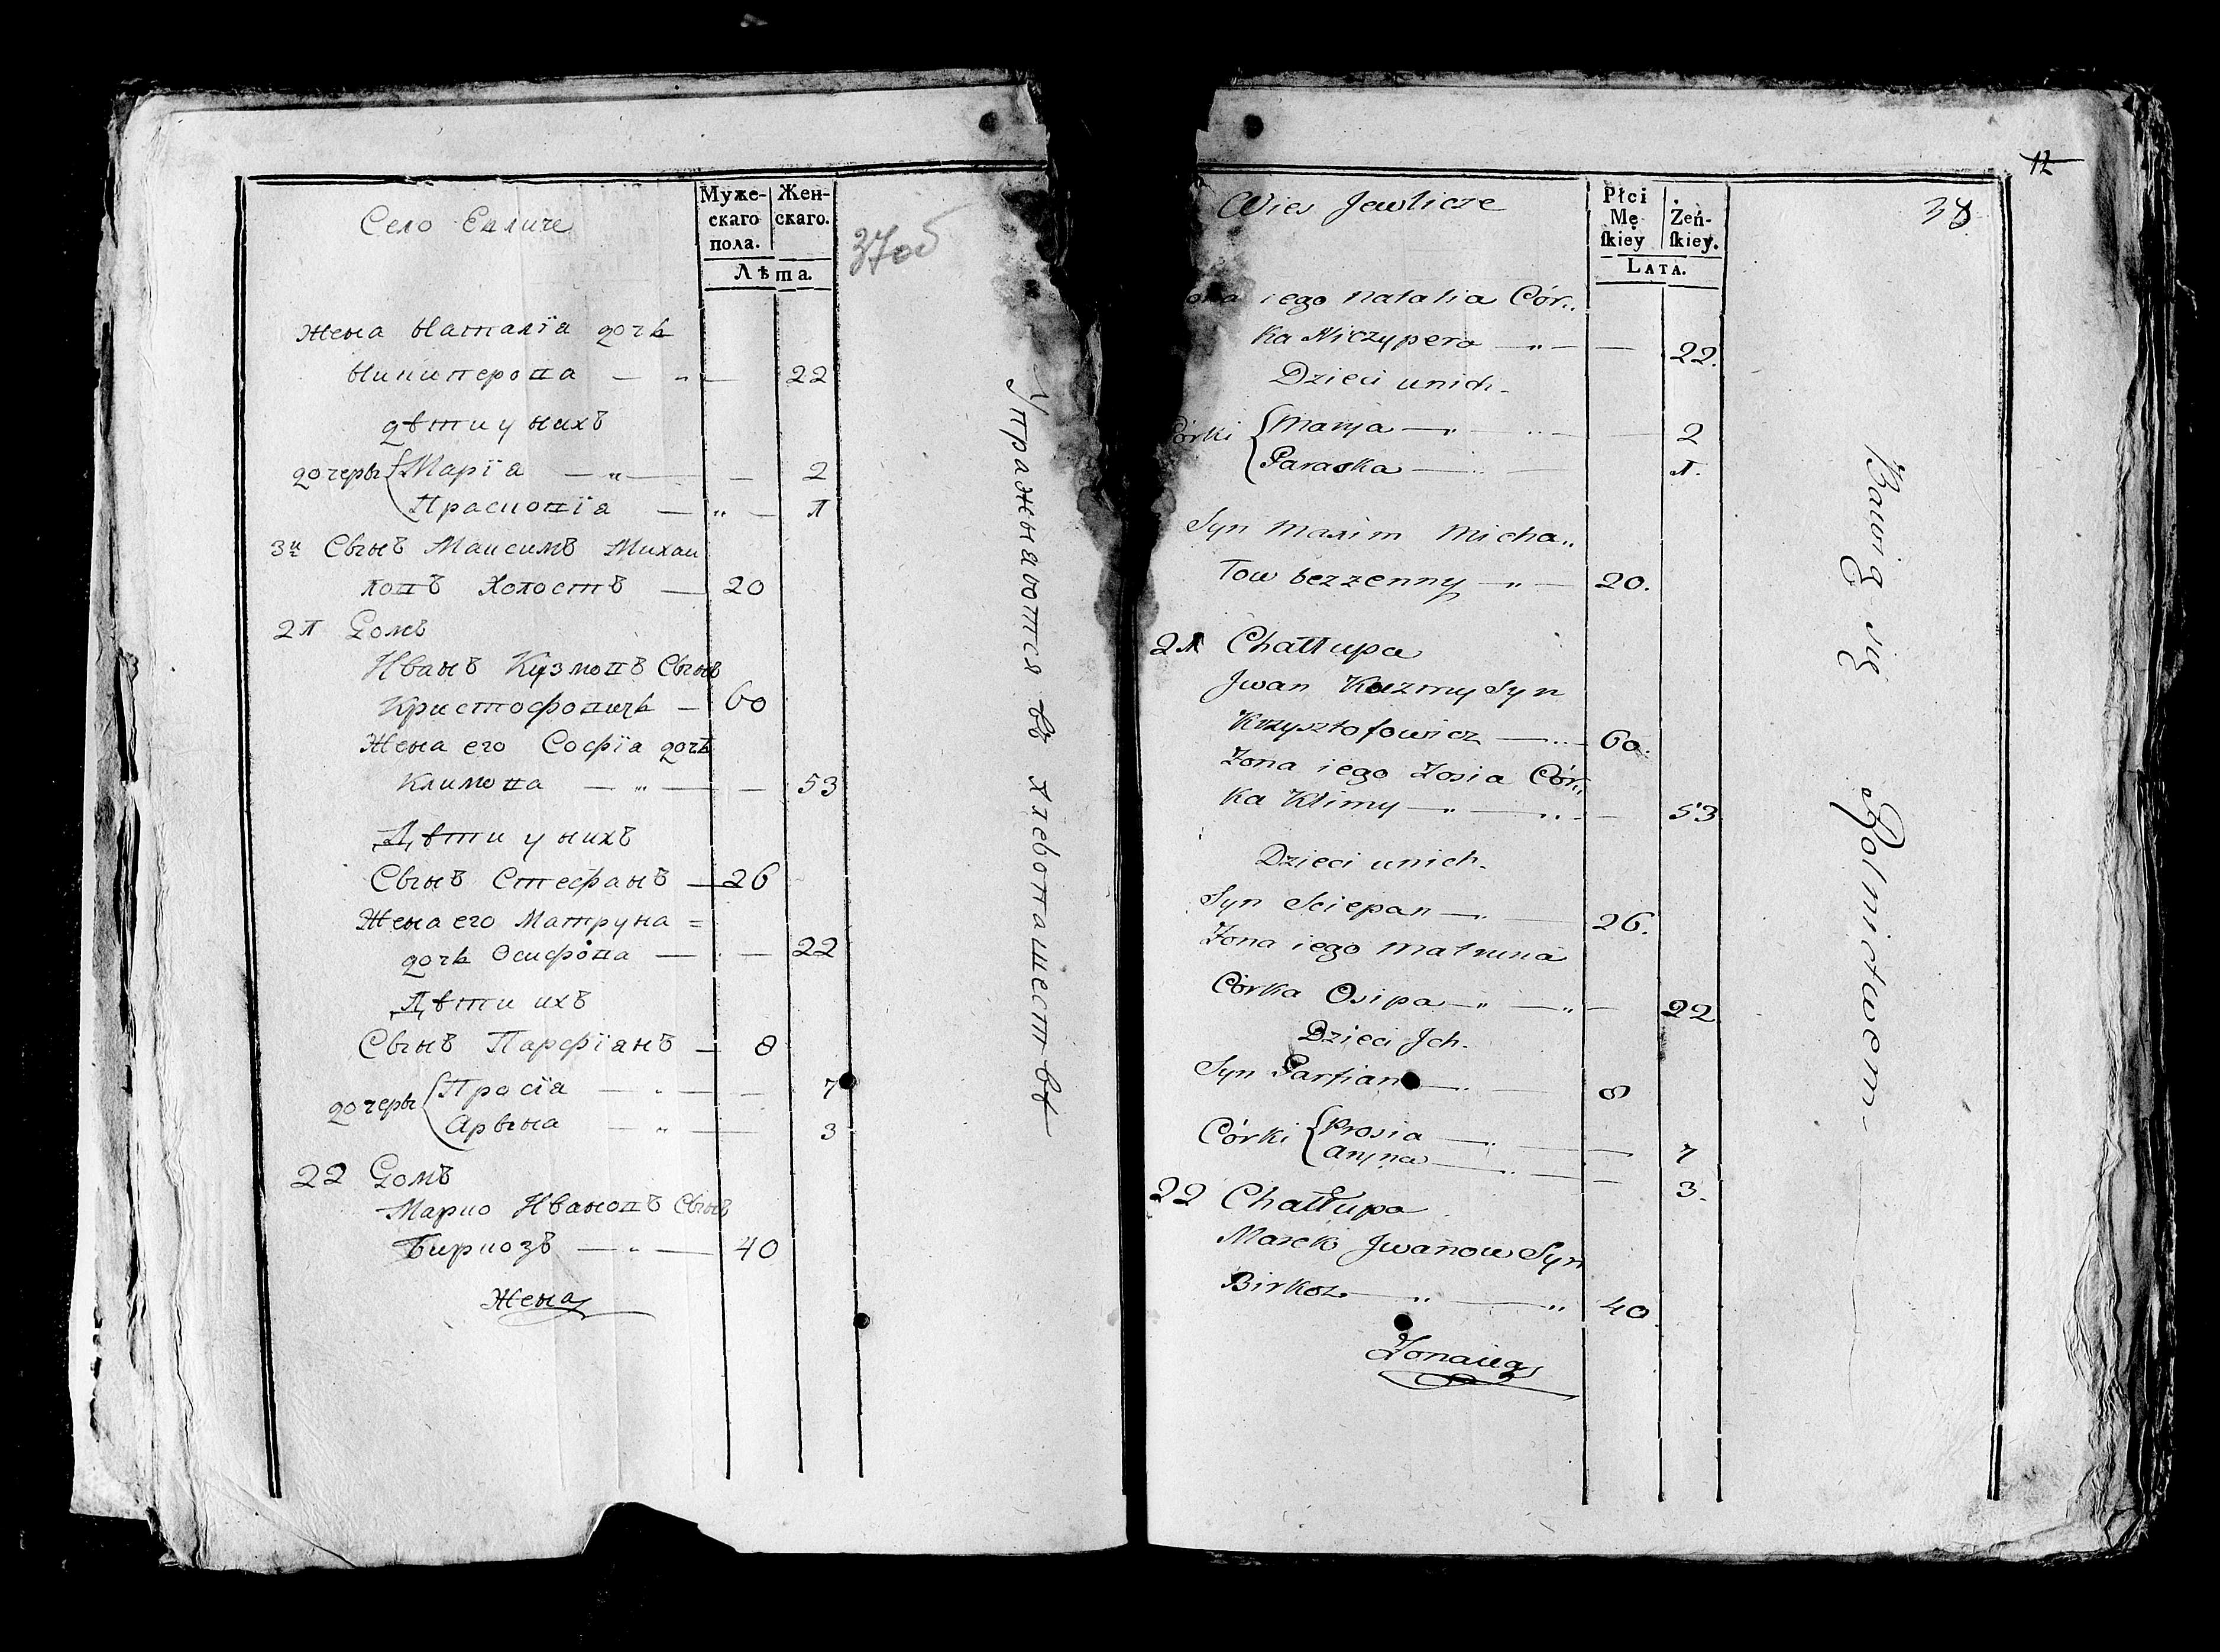 Село Евличе
Муже-
скаго
пола.
Жен-
скаго.
Лѣта.
37об
Жена Наталїа дочь
Никиперова — „ — 22
дѣти у нихъ
дочеры Марїа — „ — — 2
Прасковїа — „ — 1
3й Сынъ Максимъ Михаи
ловъ Холостъ — 20
21 Домъ
Иванъ Кузмовъ Сынъ
Кристофовичь — 60
Жена его Софїа дочь
Климова — „ — — 53
Дѣти у нихъ
Сынъ Стефанъ — 26
Жена его Матруна =
дочь Осифова — — 22
Дѣти ихъ
Сынъ Парфїанъ — 8
дочеры Просїа — „ — — 7
Арына — „ — 3
22 Домъ
Марко Ивановъ Сынъ
Биркозъ — „ — 40
Жена
Упражняются въ хлебопашествѣ
12
38
Wies Jewlicze
Płci
Mę
ſkiey
Żeń-
ſkiey.
Lata.
ona iego Natalia Cór„
ka Niczypera — „ — — 22.
Dzieci unich.
Córki Marya — „ — „ — — 2
Paraska — „ — 1.
Syn Maxim Micha„
low bezzenny — „ — 20.
21 Chałłupa
Jwan Kuzmy Syn
Krzysztofowicz — „ — 60.
Zona iego Zosia Cór„
ka Klimy — „ — „ — 53
Dzieci unich.
Syn Sciepan — „ — 26.
Zona iego Matruna
Córka Osipa — „ — „ — 22
Dzieci Jch.
Syn Parfian — „ — 8
Córki Prosia — „ — — 7
Aryna — „ — — 3.
22 Chałłupa
Marek Jwanow Syn
Birkoz — „ — „ 40
Zona iego
Bawią się Rolnictwem